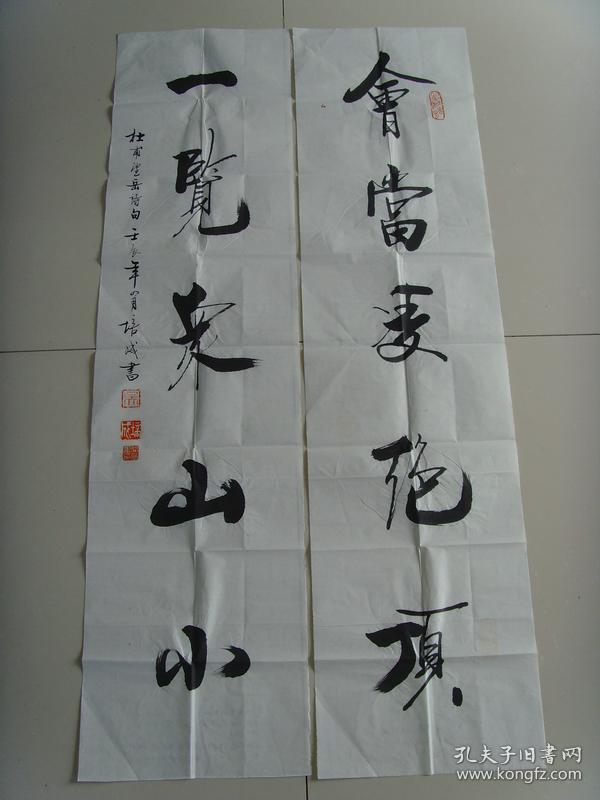 會當凌絕頂
一覽衆山小
杜甫望岳诗句 壬辰年八月 培成書
孔夫子旧書网
www.kongfz.com